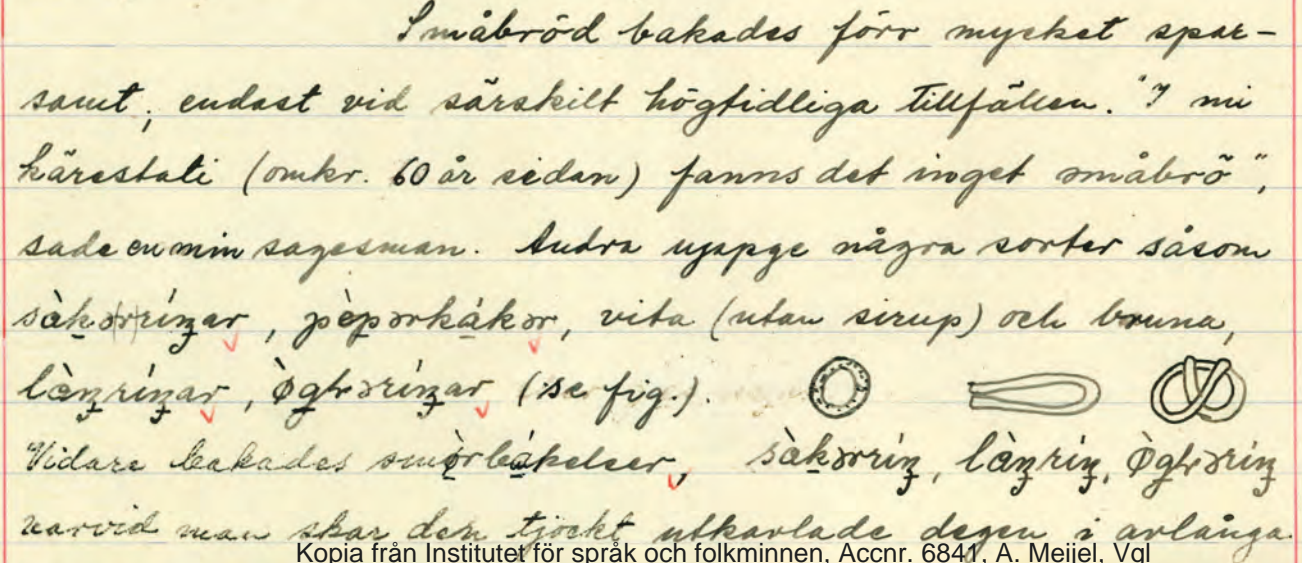 Småbröd bakades förr mycket spar-
samt, endast vid särskilt högtidliga tillfällen. "I mi
kärestati (omkr. 60 år sedan) fanns det inget småbrö",
sade en min sagesman. Andra uppge några sorter såsom
sàk(ər)ríŋar, pèpərkákər, vita (utan sirup) och bruna,
làŋríŋar, ògləríŋar (se fig.).
Vidare bakades smörbákelser, sàkərríŋ, làŋríŋ, ògləríŋ
varvid man skar den tjockt utkavlade degen i avlånga
Kopia från Institutet för språk och folkminnen, Accnr. 6841, A. Meijel, Vgl